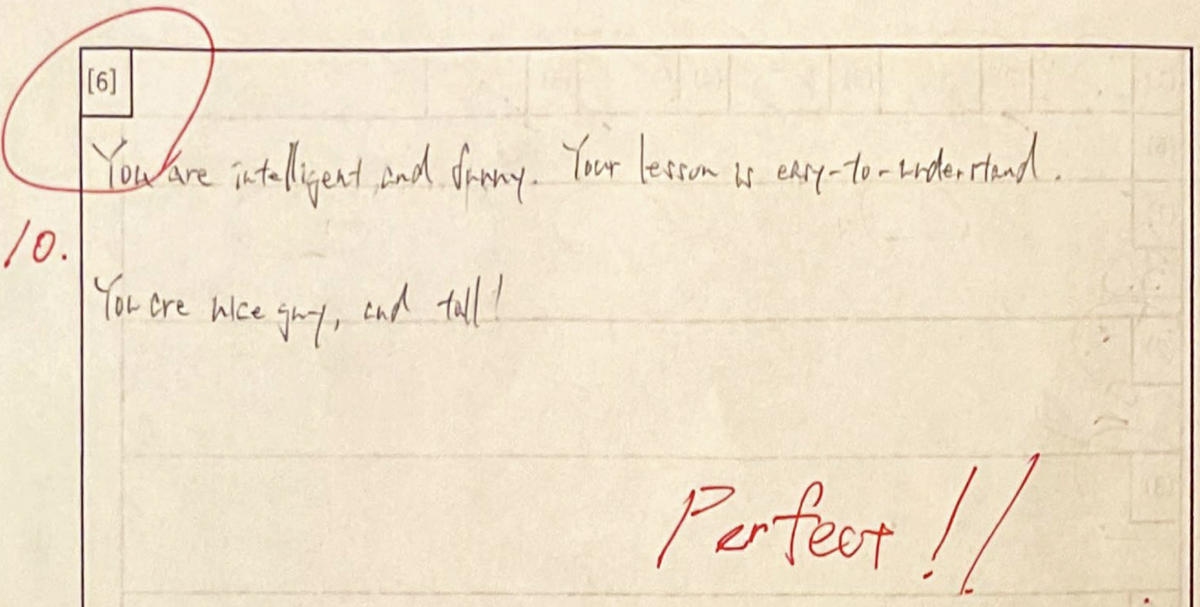 [6]
You are intelligent and funny. Your lesson is easy-to-understand.
10.
You are nice guy, and tall!
Perfect!!